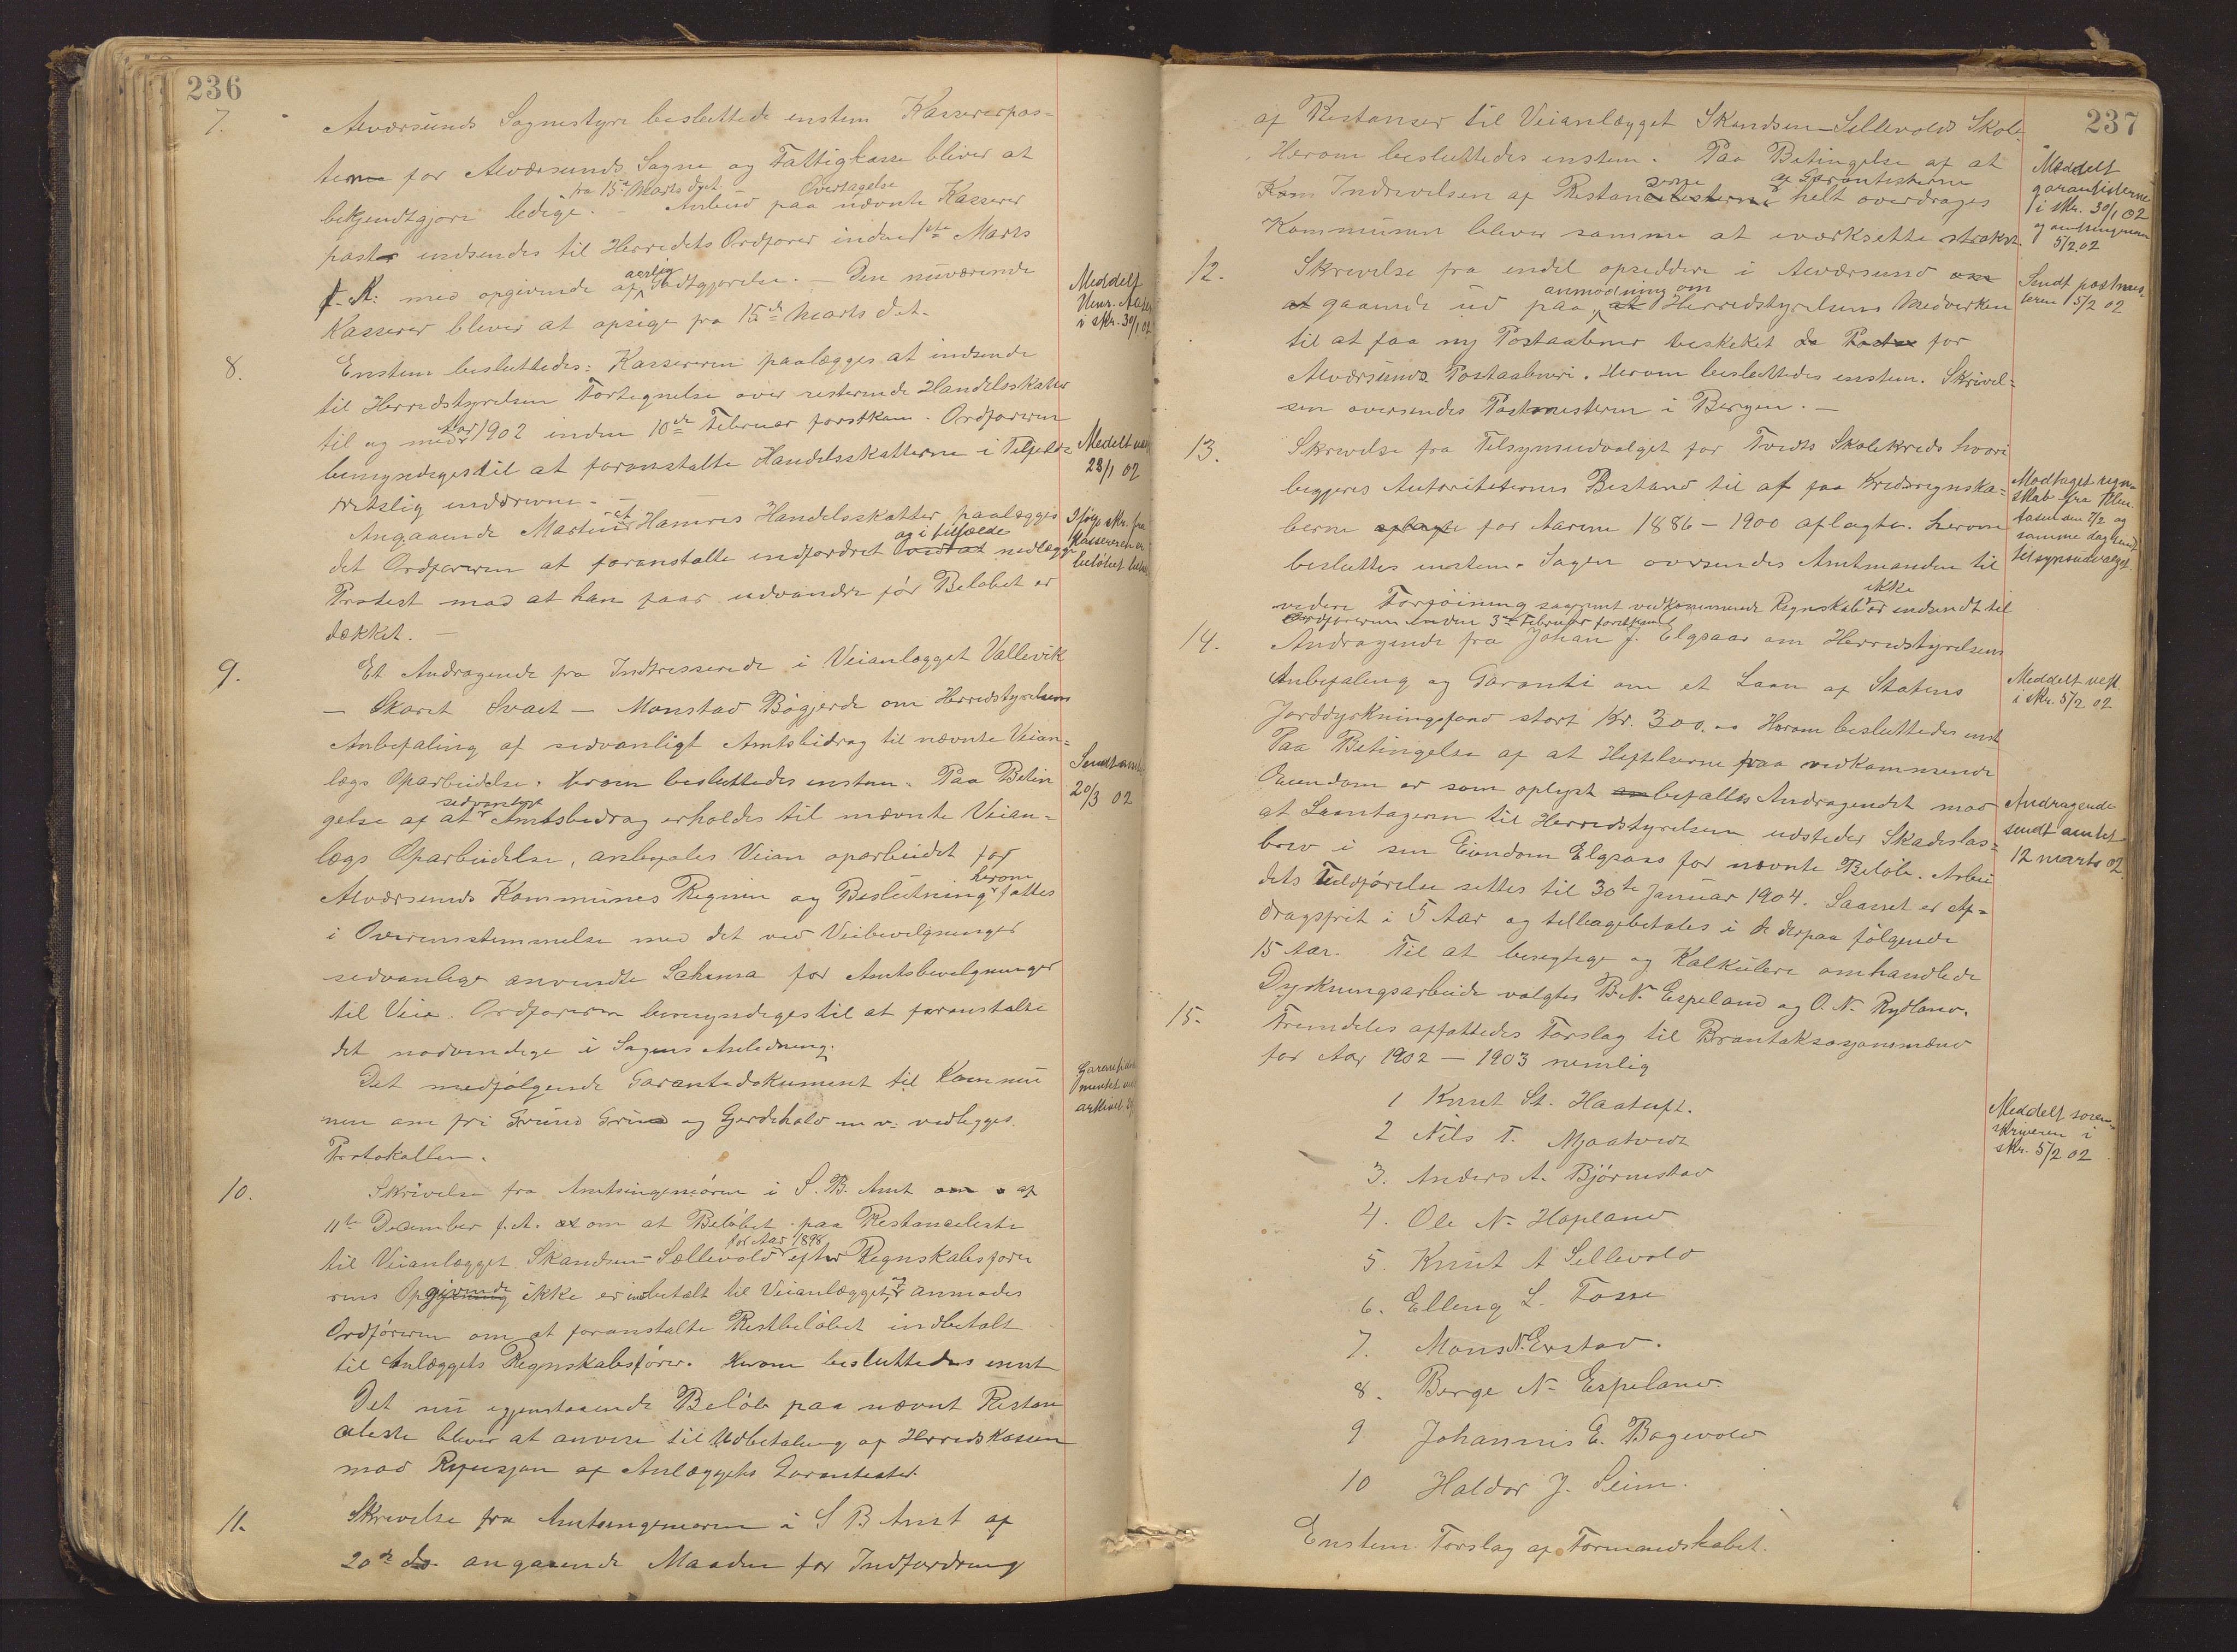 236
7. Alværsunds Sognestyre besluttede enstem Kassererpos-
terne for Alværsunds Sogne og Fattigkasse bliver at
bekjendtgjøre ledige fra 15de Marts d.A. – Anbud paa Overtagelse nævnte Kasserer
poster indsendes til Herredets Ordfører inden 1ste Marts
f. K: med opgivende af aarlig Godtgjørelse. – Den nuværende
Kasserer bliver at opsige fra 15de Marts d.A.
Meddelt
i skr. 30/1 02
8. Enstem besluttedes: Kassereren paalægges at indsende
til Herredstyrelsen Fortegnelse over resterende Handelsskatter
til og med Aar 1902 inden 10de Februar førstkom. Ordføreren
bemyndiges til at foranstalte Handelsskatterne i Tilfælde
retslig inddrevne. –
Medelt
28/1 02
Angaaende Martinus Hamres Handelsskatter paalægges
det Ordføreren at foranstalte indfordret og i tilfælde nedlægge
Protest mod at han faar udvandre før Beløbet er
dækket. –
Ifølge skr. fra
Kassereren er
beløbet
9. Et Andragende fra Indtresserede i Veianlægget Vallevik
– Skaret Svaet – Monstad Bøgjerde om Herredstyrelsens
Anbefaling af sedvanligt Amtsbidrag til nævnte Veian-
lægs Oparbeidelse. Herom besluttedes enstem. Paa Betin
gelse af at sedvanligt Amtsbedrag erholdes til nævnte Veian-
lægs Oparbeidelse, anbefales Veien oparbeidet for
Alværsunds Kommunes Regning og Beslutning herom fattes
i Overensstemmelse med det ved Veibevilgninger
sedvanlige anvendte Schema for Amtsbevilgninger
til Veie. Ordføreren bemyndiges til at foranstalte
det nødvendige i Sagens Anledning.
Sendt amtet
20/3 02
Det medfølgende Garantidokument til Kommu
nen om fri Grund Grus og Gjerdehold m.v. vedlegges
Protokollen.
10. Skrivelse fra Amtsingeniøren i S. B. Amt af
11te December f.A. om at Beløbet paa Restanceliste
til Veianlægget Skandsen – Sællevold for Aar 1898 efter Regnskabsføre
rens Opgivende ikke er indbetalt til Veianlægget, og anmodes
Ordføreren om at foranstalte Restbeløbet indbetalt
til Anlæggets Regnskabsfører. Herom besluttedes enst
Det nu igjenstaaende Beløb paa nævnt Restan
celiste bliver at anvise til Udbetaling af Herredskassen
mod Refusjon af Anlæggets Garantister.
11. Skrivelse fra Amtsingeniøren i S B Amt af
20de ds angaaende Maaden for Indfordring
237
af Restanser til Veianlægget Skandsen – Sellevolds Skole.
Herom besluttedes enstem. Paa Betingelse af at
Indrivelsen af Restanserne af Garantisterne helt overdrages
Kommunen bliver samme at iværksette strakst.
Meddelt
garantisterne
i skr. 30/1 02
og amtsingeniøren
5/2 02
12. Skrivelse fra endel opseddere i Alværsund
gaaende ud paa anmodning om Herredstyrelsens Medvirken
til at faa ny Postaabner beskeket for
Alværsunds Postaabneri. Herom besluttedes enstem. Skrivel-
sen oversendes Postmesteren i Bergen. –
Sendt postmes-
teren 5/2 02
13. Skrivelse fra Tilsynsudvalget for Tveits Skolekreds hvori
begjeres Autoriteternes Bestand til at faa Kredsregnska-
berne for Aarene 1886 – 1900 aflagte. Herom
besluttes enstem. Sagen oversendes Amtmanden til
videre Forføining saafremt vedkommende Regnskab ikke er indsendt til
Ordføreren inden 3de Februar førstkom.
Modtaget regn-
skab fra
den 7/2 og
samme dag sendt
tilsynsudvalget.
14. Andragende fra Johan J. Elgsaas om Herredstyrelsens
Anbefaling og Garanti om et Laan af Statens
Jorddyrkningsfond stort Kr. 300.00 Herom besluttedes enst
Paa Betingelse af at Heftelserne paa vedkommende
Eiendom er som oplyst anbefalles Andragendet mod
at Laantageren til Herredstyrelsen udsteder Skadesløs-
brev i sin Eiendom Elgsaas for nævnte Beløb. Arbei
dets Fuldførelse settes til 30te Januar 1904. Laanet er Af-
dragsfrit i 5 Aar og tilbagebetales i de derpaa følgende
15 Aar. Til at besigtige og Kalkulere omhandlede
Dyrkningsarbeide valgtes B. N. Espeland og O. N. Rydland.
Meddelt vedk
i skr. 5/2 02
Andragende
sendt amtet
12 marts 02.
15. Fremdeles affattedes Forslag til Brantaksasjonsmænd
for Aar 1902 – 1903 nemlig
1 Knut St. Haatuft.
2 Nils T. Mjaatvedt
3. Anders A. Bjørnestad
4. Ole N. Hopland
5. Knut A Sellevold
6. Elling L. Fosse
7. Mons N. Erstad.
8. Berge N. Espeland.
9 Johannes E. Bogevold
10 Haldor J. Seim.
Meddelt soren-
skriveren i
skr. 5/2 02
Enstem Forslag af Formandskabet.